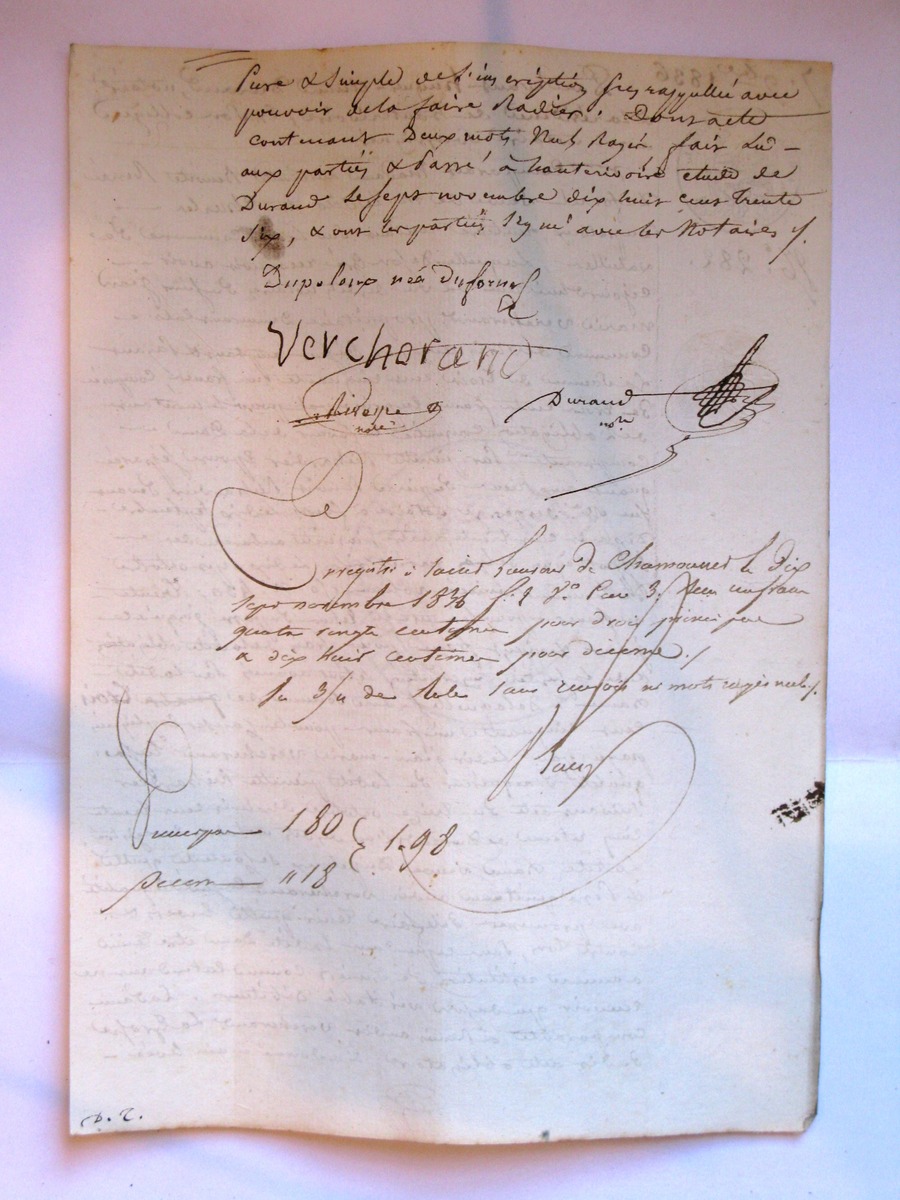 Pure & Simple de l'inscription Susrappellée avec
pouvoir de la faire Radier; Dont acte
contenant Deux mots Nuls Rayés fait Lu
aux parties & Passé à hauterivoire étude de
Durand le sept novembre dix huit cent trente
Six, & ont les parties signé avec les Notaires
Dupeloux née Duforn
Vercherand
notre
Durand
nore
Enregistré à Saint de Chamousset le dix
sept novembre 1836 f. 2 Vo Case 3. Reçu un franc
quatre vingts centimes pour droit principal
& dix huit centimes pour décime./
La 3/4 de sans renvois ni mots rayés nuls/.
principal 180 } 1.98
Décime " 18
D. T.